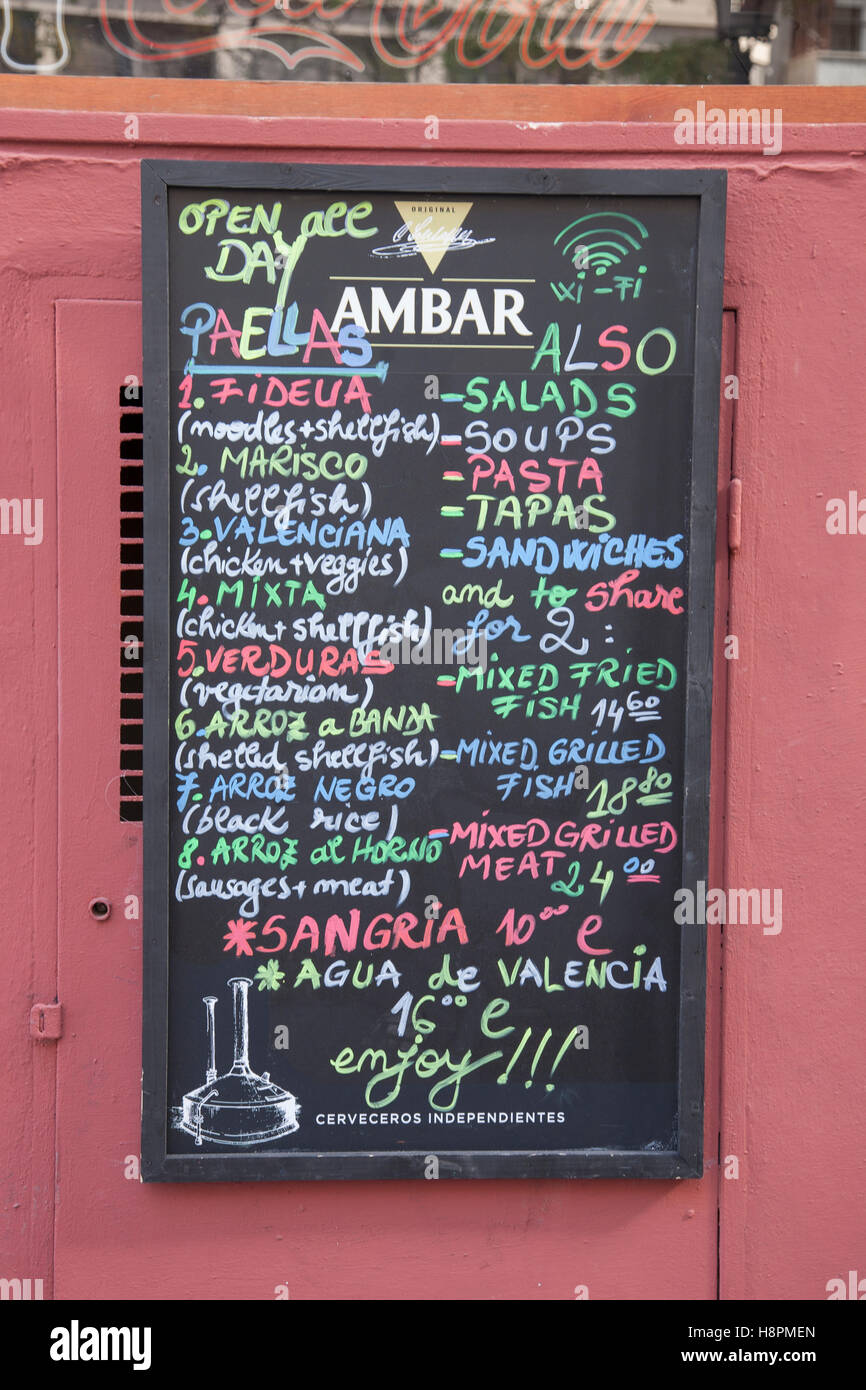 Coca-Cola
OPEN all
DAY
ORIGINAL
AMBAR
Wi-Fi
PAELLAS
1. FIDEUA
(noodles+shellfish)
2. MARISCO
(shellfish)
3. VALENCIANA
(chicken+veggies)
4. MIXTA
(chicken+shellfish)
5. VERDURAS
(vegetarian)
6. ARROZ a BANDA
(shelled shellfish)
7. ARROZ NEGRO
(black rice)
8. ARROZ al HORNO
(sausages+meat)
ALSO
-SALADS
-SOUPS
-PASTA
-TAPAS
-SANDWICHES
and to share
for 2:
-MIXED FRIED
FISH 14 60
-MIXED GRILLED
FISH 18 80
-MIXED GRILLED
MEAT 24 00
*SANGRIA 10 00 e
*AGUA de VALENCIA
16 00 e
enjoy!!!
CERVECEROS INDEPENDIENTES
alamy
Image ID: H8PMEN
www.alamy.com